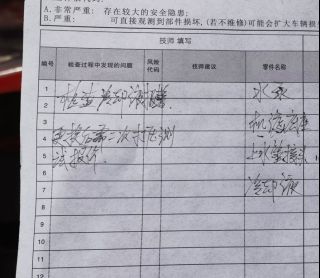 A.非常严重: 存在较大的安全隐患;
B.严重: 可直接观测到部件损坏,(若不维修)可能会扩大车辆损
技师 填写
编号 检查过程中发现的问题 风险代码 技师建议 零件名称
1 检查冷却液泄露 水泵
2
3 机滤底座
4 更换后需二次打压测
5 试报价 上水管接头
6
7 冷却液
8
9
10
11
12